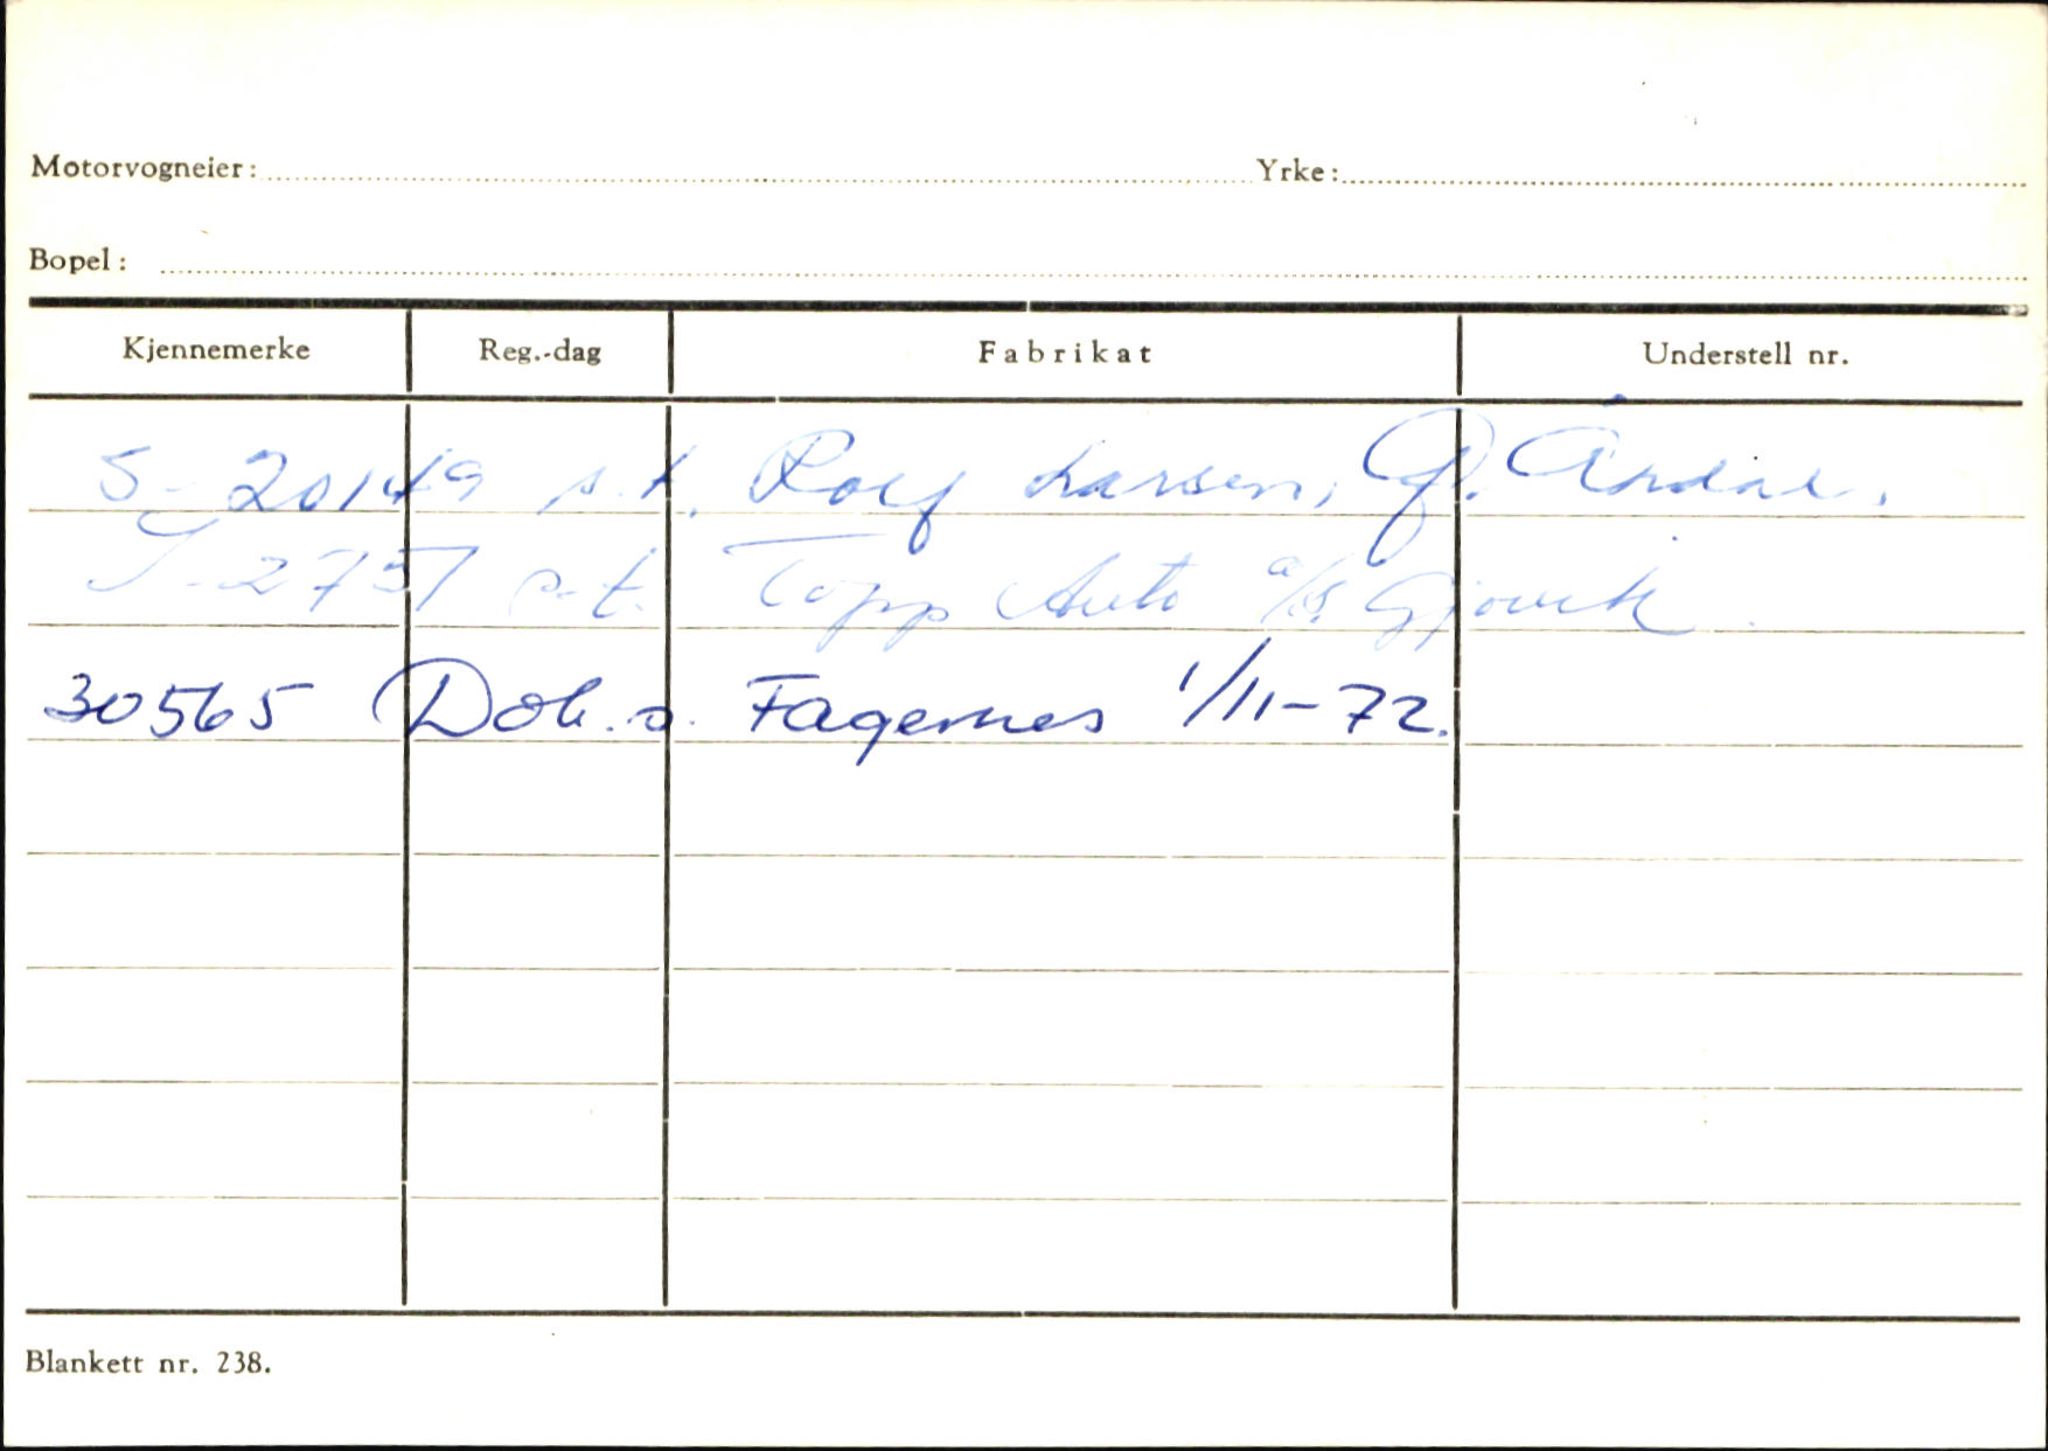 Motorvogneier: Yrke:
Bopel:
Kjennemerke Reg.-dag Fabrikat Understell nr.
S-20149 s.t. Rolf Larsen, Ø. Årdal.
S-2757 s.t. Topp Auto a/s. Gjøvik.
30565 Dok. s. Fagernes 1/11-72.
Blankett nr. 238.